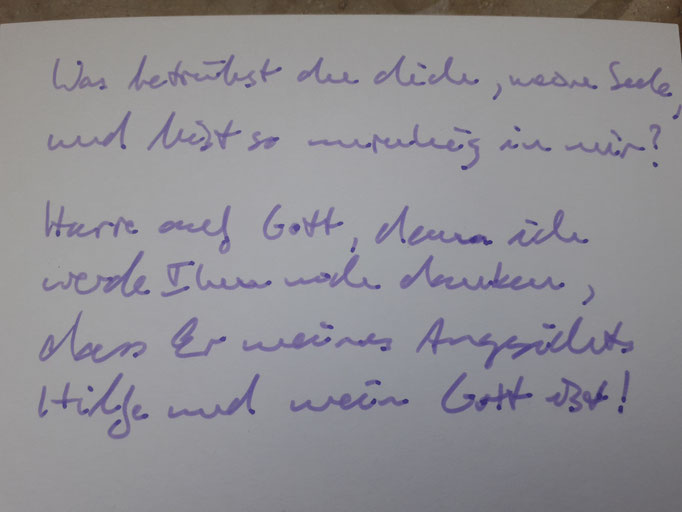 Was betrübst du dich, meine Seele,
und bist so unruhig in mir?
Harre auf Gott, denn ich
werde Ihm noch danken,
dass Er meines Angesichts
Hilfe und mein Gott ist!